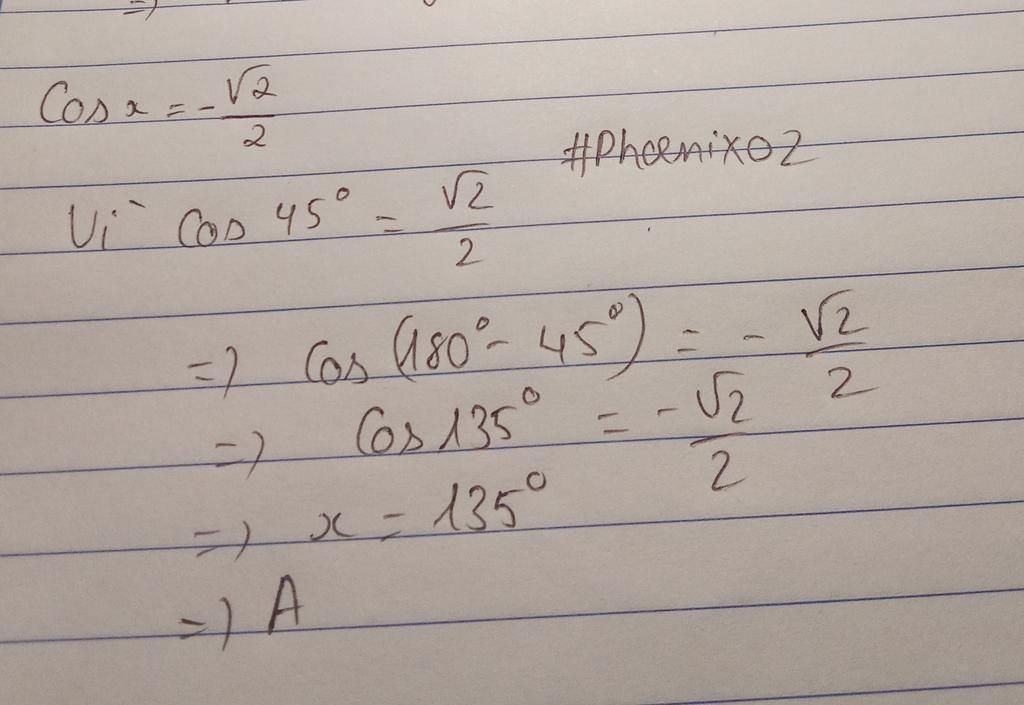 =)
Cos x = - √2/2
#Phoenix02
Vì Cos 45° = √2/2
=) Cos (180° - 45°) = - √2/2
=) Cos 135° = - √2/2
=) x = 135°
=) A